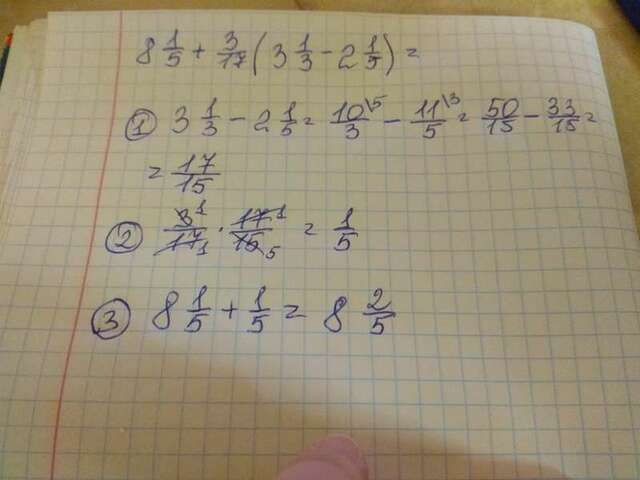 8 1/5 + 3/17 (3 1/3 - 2 1/5) =
① 3 1/3 - 2 1/5 = 10\5/3 - 11\3/5 = 50/15 - 33/15 =
= 17/15
② 3 1/17 1 · 17 1/15 5 = 1/5
③ 8 1/5 + 1/5 = 8 2/5